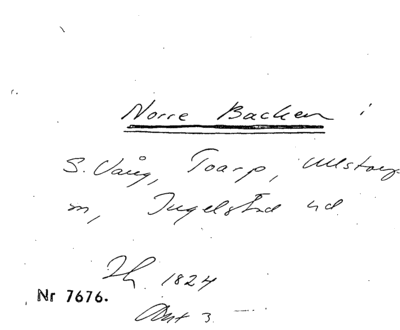 Norre Backen i
S. Vång, Toarp, Ullstorp
m, Ingelstad hd
1824
Nr 7676.
3.